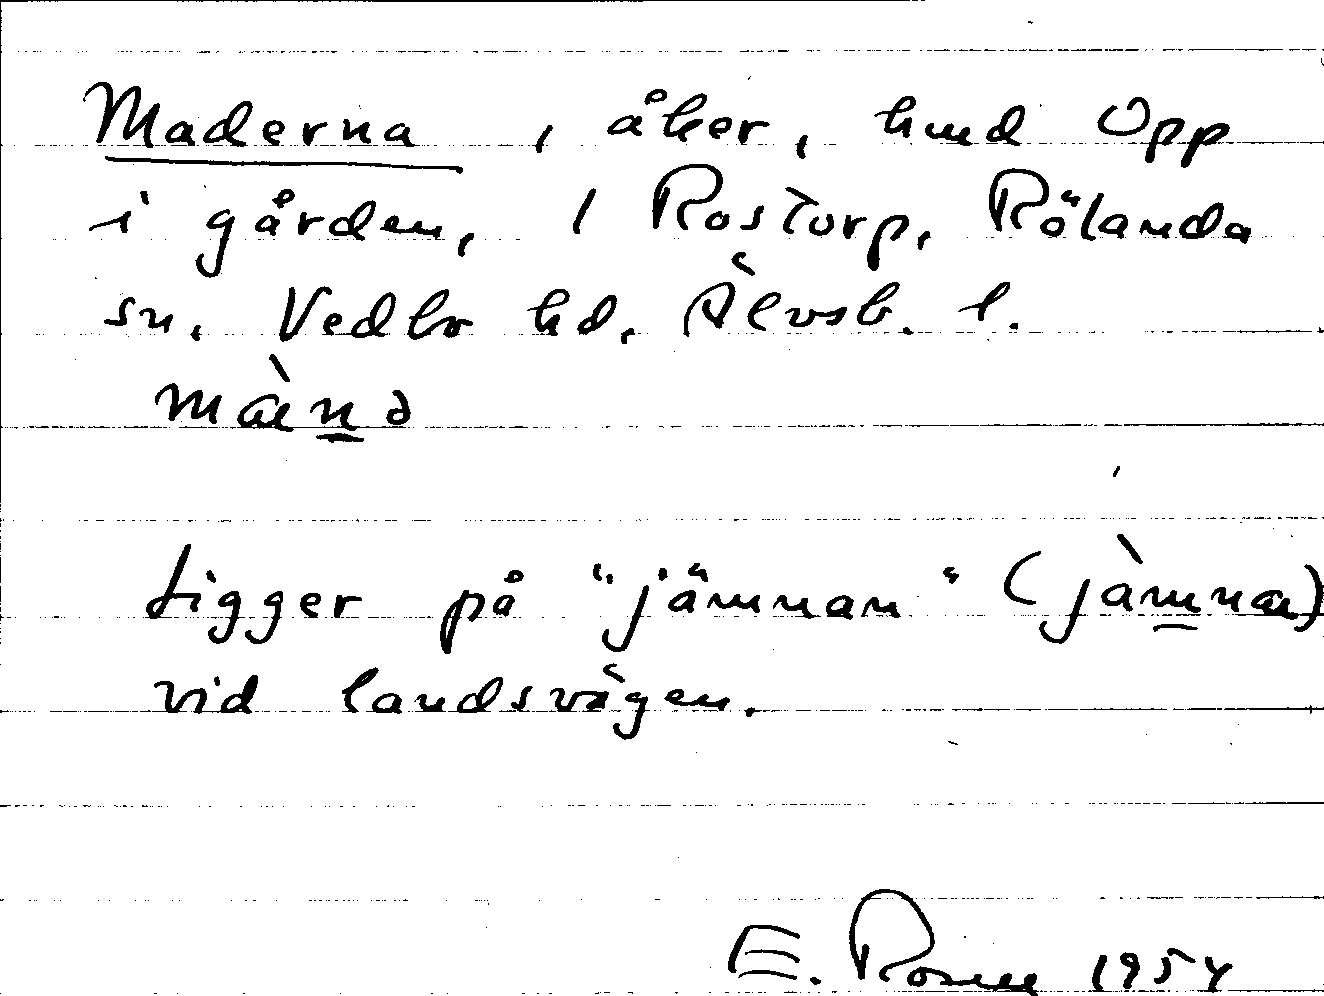 Maderna, åker, hmd Opp
i gården, 1 Rostorp, Rölanda
sn. Vedbo hd, Älvsb. l.
mæ̀n̲ə
Ligger på "jämnan" (jàm̲næ)
vid landsvägen.
E. Rosell 1954